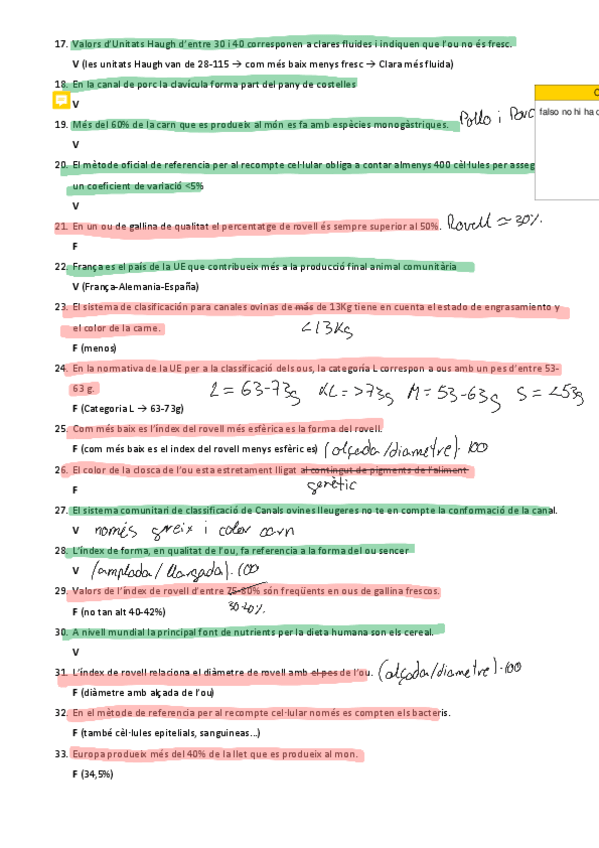 17. Valors d'Unitats Haugh d'entre 30 i 40 corresponen a clares fluides i indiquen que l'ou no és fresc.
V (les unitats Haugh van de 28-115 → com més baix menys fresc → Clara més fluida)
18. En la canal de porc la clavícula forma part del pany de costelles
V
falso no hi ha
19. Més del 60% de la carn que es produeix al món es fa amb espècies monogàstriques. Pollo i Porc
V
20. El mètode oficial de referencia per al recompte cel·lular obliga a contar almenys 400 cèl·lules per asseg
un coeficient de variació <5%
V
21. En un ou de gallina de qualitat el percentatge de rovell és sempre superior al 50%. Rovell ≃ 30%.
F
22. França es el país de la UE que contribueix més a la producció final animal comunitària
V (França-Alemania-España)
23. El sistema de clasificación para canales ovinas de más de 13Kg tiene en cuenta el estado de engrasamiento y
el color de la carne. <13Kg
F (menos)
24. En la normativa de la UE per a la classificació dels ous, la categoria L correspon a ous amb un pes d'entre 53-
63 g. L = 63-73g XL = >73g M = 53-63g S = <53g
F (Categoria L → 63-73g)
25. Com més baix es l'índex del rovell més esfèrica es la forma del rovell.
F (com més baix es el index del rovell menys esfèric es) (alçada/diametre)·100
26. El color de la closca de l'ou esta estretament lligat al contingut de pigments de l'aliment
F genètic
27. El sistema comunitari de classificació de Canals ovines lleugeres no te en compte la conformació de la canal.
V només greix i color carn
28. L'índex de forma, en qualitat de l'ou, fa referencia a la forma del ou sencer
V (amplada/llargada)·100
29. Valors de l'índex de rovell d'entre 75-80% són freqüents en ous de gallina frescos.
F (no tan alt 40-42%)
30. A nivell mundial la principal font de nutrients per la dieta humana son els cereal.
V
31. L'índex de rovell relaciona el diàmetre de rovell amb el pes de l'ou. (alçada/diametre)·100
F (diàmetre amb alçada de l'ou)
32. En el mètode de referencia per al recompte cel·lular només es compten els bacteris.
F (també cèl·lules epitelials, sanguineas...)
33. Europa produeix més del 40% de la llet que es produeix al mon.
F (34,5%)